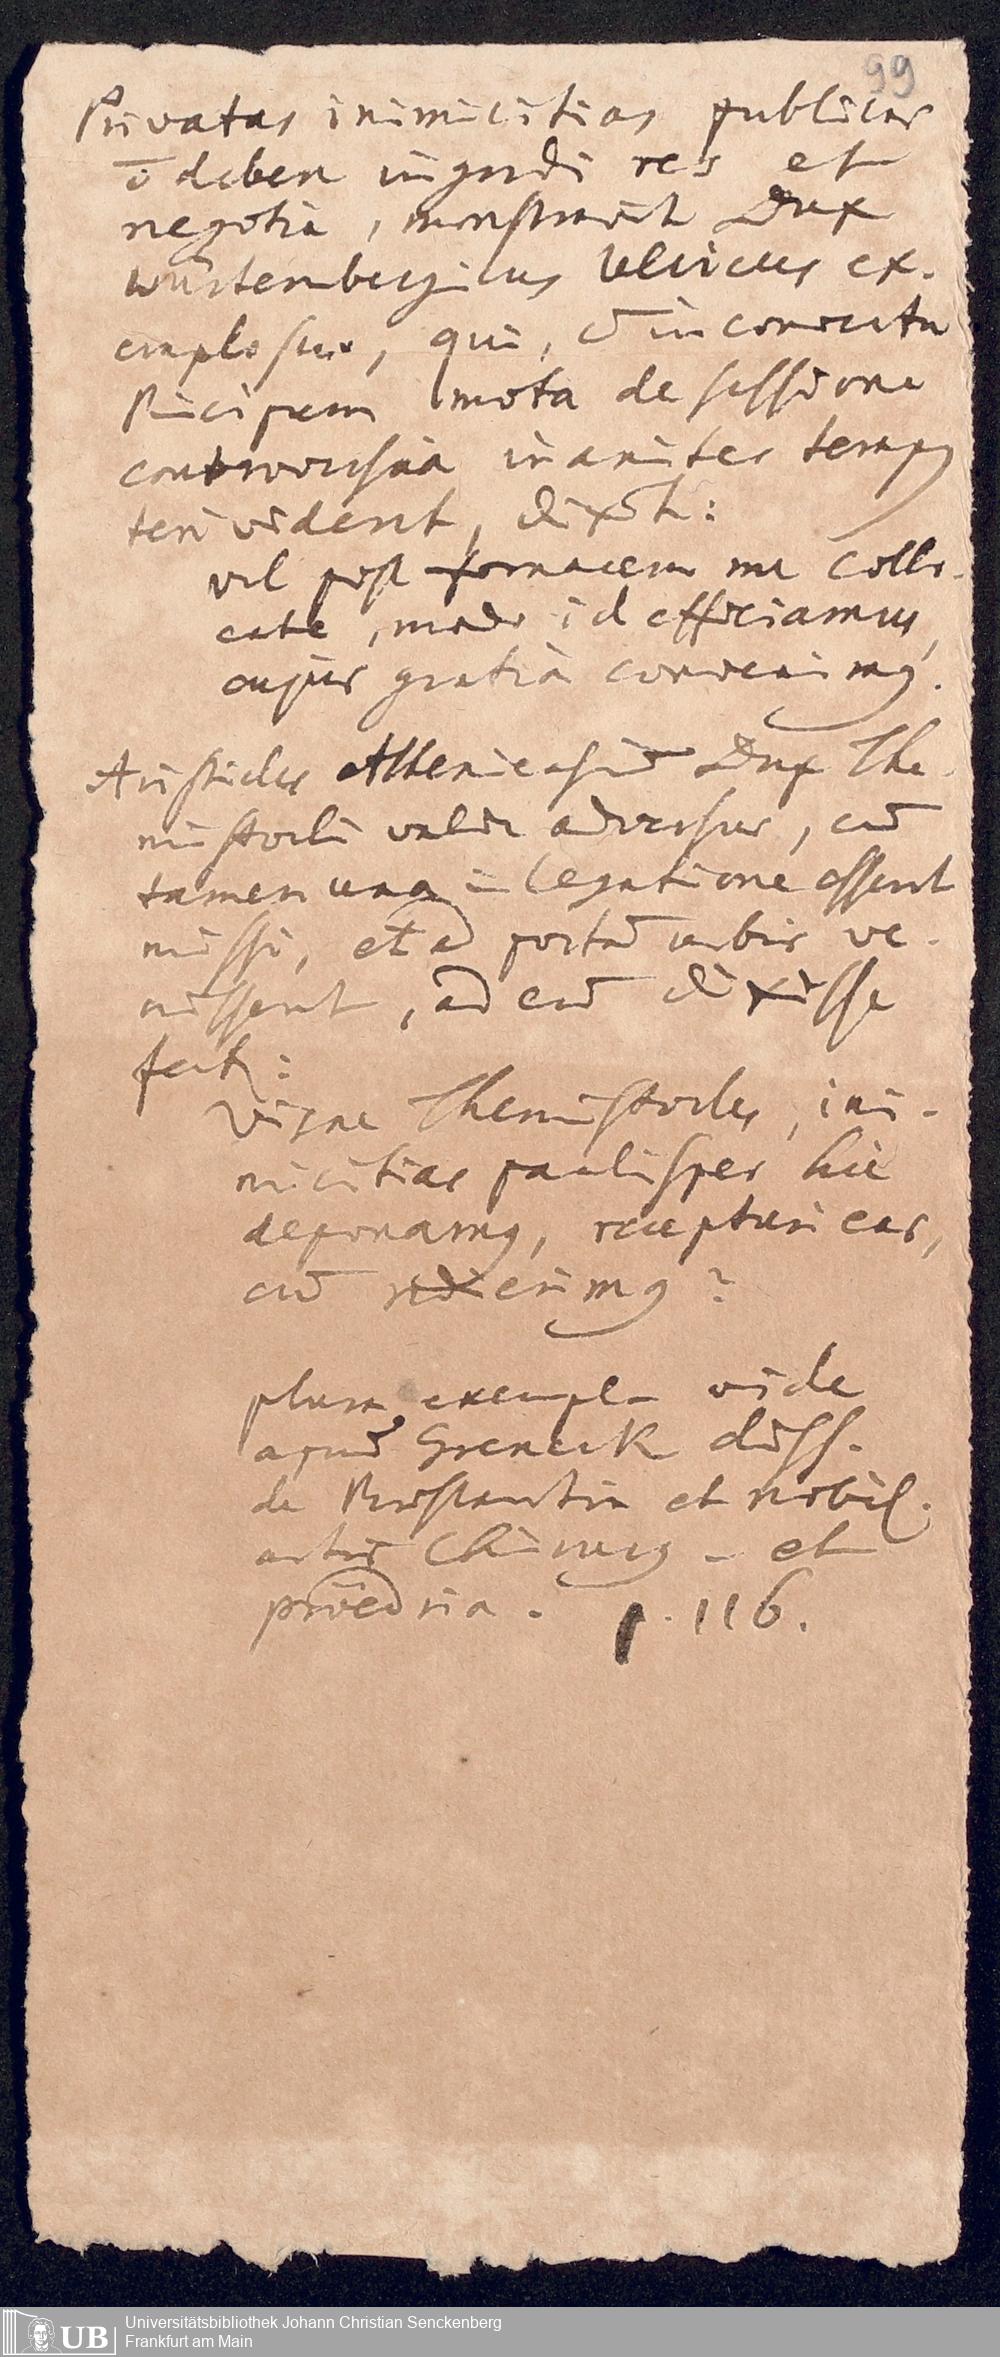 99
Privatas inimicitias publicas
ō deben ingredi res et
negotia, monstravit Dux
Würtembergicus Ulricus ex-
emplo suo, qui, cū in conventu
Principum mota de sessione
controversia inaniter temp9
teri videret, dixit:
vel post fornacem me collo-
cate, modo id efficiamus,
cujus gratia convenim9.
Aristides Atheniensiū Dux The-
mistocli valde adversus, cū
tamen una in legatione essent
missi, et ad portā urbis ve-
nissent, ad eū dixisse
fert:
Visne Themistocles, ini-
micitias paulisper hic
deponam9, recepturi eas,
cū redierim9?
plura exempla vide
apud diss.
de Praestantia et nobil.
artis Chirurg - et
proedria. p. 116.
UB
Universitätsbibliothek Johann Christian Senckenberg
Frankfurt am Main